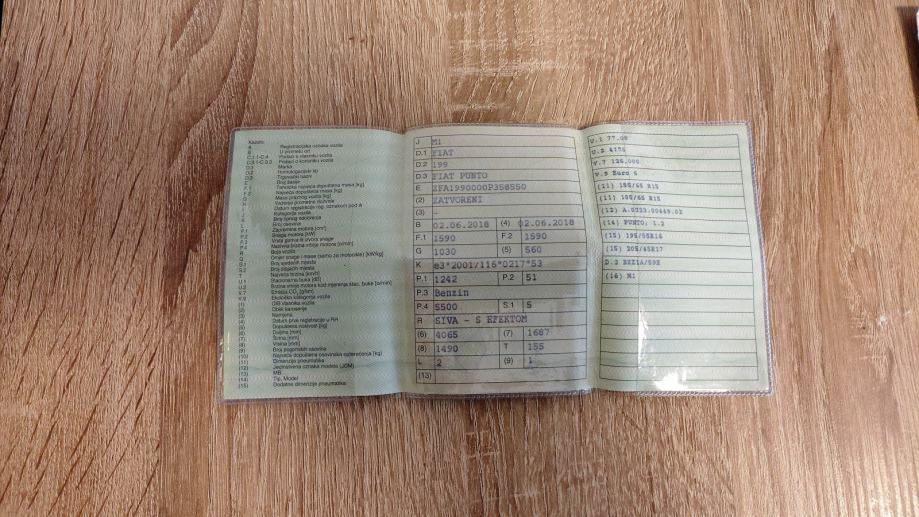 Kazalo:
A Registracijska oznaka vozila
B U prometu od
C.1.1-C.4 Podaci o vlasniku vozila
C.3.1-C.3.3 Podaci o korisniku vozila
D.1 Marka
D.2 Homologacijski tip
D.3 Trgovački naziv
E Broj šasije
F.1 Tehnička najveća dopuštena masa [kg]
F.2 Najveća dopuštena masa [kg]
G Masa praznog vozila [kg]
H Važenje prometne dozvole
I Datum registracije reg. oznakom pod A
J Kategorija vozila
K Broj tipnog odobrenja
L Broj osovina
P.1 Zapremina motora [cm³]
P.2 Snaga motora [kW]
P.3 Vrsta goriva ili izvora snage
P.4 Nazivna brzina vrtnje motora [o/min]
R Boja vozila
Q Omjer snage i mase (samo za motocikle) [kW/kg]
S.1 Broj sjedećih mjesta
S.2 Broj stajaćih mjesta
T Najveća brzina [km/h]
U.1 Stacionarna buka [dB]
U.2 Brzina vrtnje motora kod mjerenja stac. buke [o/min]
V.7 Emisija CO₂ [g/km]
V.9 Ekološka kategorija vozila
(1) OIB vlasnika vozila
(2) Oblik karoserije
(3) Namjena
(4) Datum prve registracije u RH
(5) Dopuštena nosivost [kg]
(6) Duljina [mm]
(7) Širina [mm]
(8) Visina [mm]
(9) Broj pogonskih osovina
(10) Najveća dopuštena osovinska opterećenja [kg]
(11) Dimenzije pneumatika
(12) Jedinstvena oznaka modela (JOM)
(13) MB
(14) Tip, Model
(15) Dodatne dimenzije pneumatika
J M1
D.1 FIAT
D.2 199
D.3 FIAT PUNTO
E ZFA1990000P358550
(2) ZATVORENI
(3) -
B 02.06.2018 (4) 02.06.2018
F.1 1590 F.2 1590
G 1030 (5) 560
K e3*2001/116*0217*53
P.1 1242 P.2 51
P.3 Benzin
P.4 5500 S.1 5
R SIVA - S EFEKTOM
(6) 4065 (7) 1687
(8) 1490 T 155
L 2 (9) 1
(13)
U.1 77.00
U.2 4125
V.7 126.000
V.9 Euro 6
(11) 185/65 R15
(11) 185/65 R15
(14) PUNTO; 1.2
(15) 195/55R16
(15) 205/45R17
(16) M1